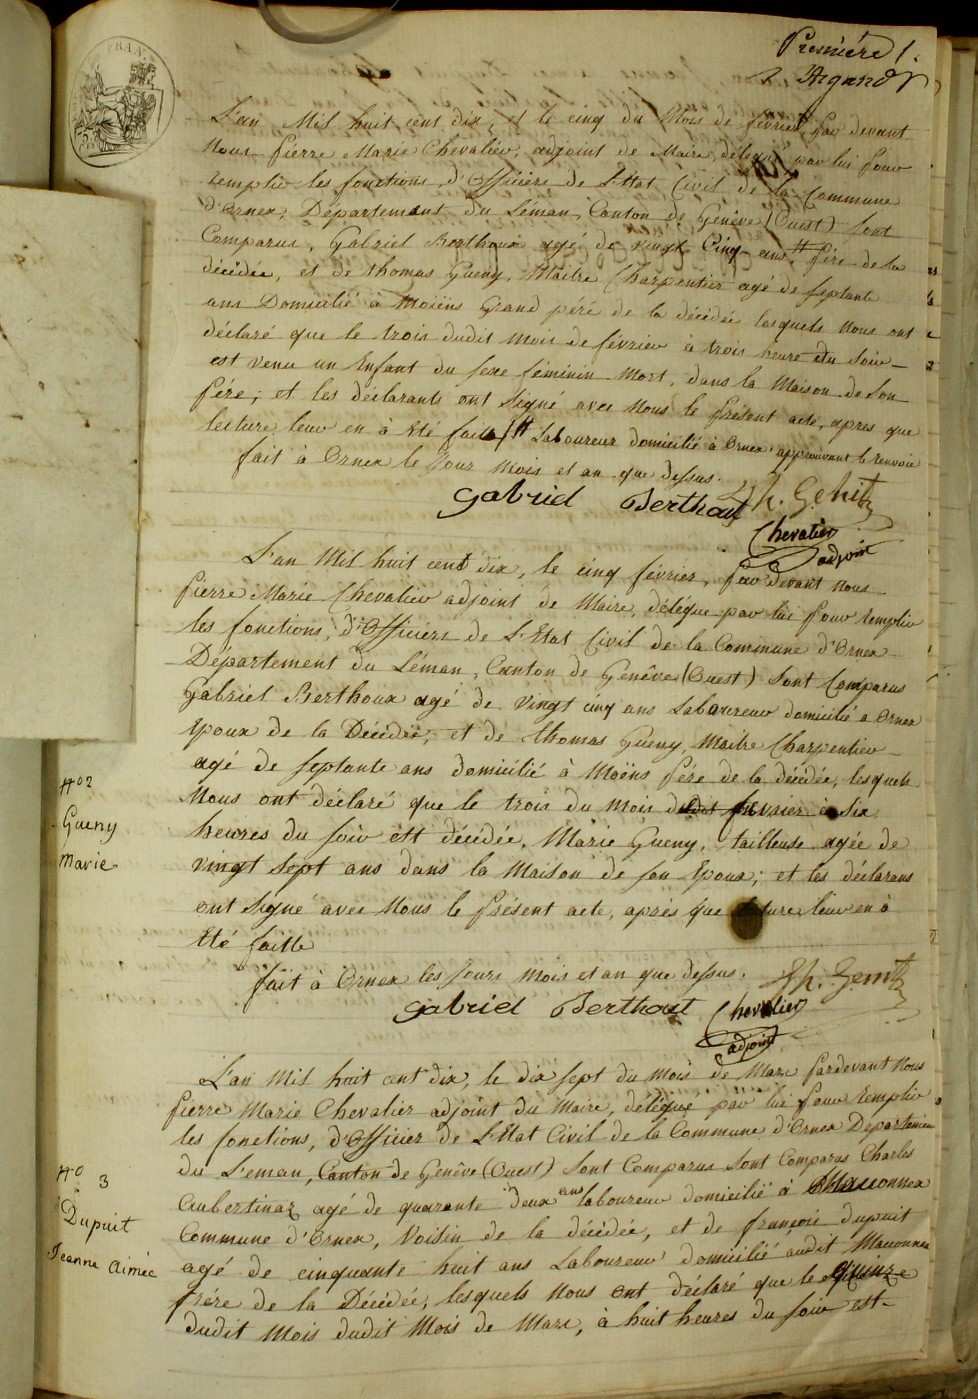 Première f.
Argand
L'an Mil huit cent dix, et le cinq du Mois de février, par devant
Nous Pierre Marie Chevalier, adjoint de Maire, délégué par lui pour
remplir les fonctions d'Officiers de L'Etat Civil de la Commune
d'Ornex, Département du Léman, Canton de Genêve (Ouest) sont
Comparus, Gabriel Berthoux agé de vingt Cinq ans, # Père de la
décédée, et de thomas Gueny, Maitre Charpentier agé de septante
ans Domicilié à Moiëns Grand pére de la décédée lesquels Nous ont
déclaré que le trois dudit mois de février à trois heure du soir
est venu un Enfant du sexe féminin Mort, dans la Maison de son
Pére; et les déclarants ont Signé avec Nous le Présent acte, apres que
lecture leur en à été faite / # Laboureur domicilié à Ornex approuvant le renvoie
fait à Ornex le Jour mois et an que dessus.
Gabriel Berthout
Chevalier
adjoin
L'an Mil huit cent dix, le cinq février, par devant nous
Pierre Marie Chevalier adjoint de Maire, délégue par lui pour remplir
les fonctions, d'Officiers de L'Etat Civil de la Commune d'Ornex
Département du Léman, Canton de Genêve (Ouest) sont Comparus
Gabriel Berthoux agé de vingt cinq ans Laboureur domicilié a Ornex
Epoux de la Décédée, et de thomas Gueny, Maitre Charpentier
agé de septante ans domicilié à Moëns Pére de la décédée, lesquels
Nous ont déclaré que le trois du mois dudit février à Six
heures du soir est décédée, Marie Gueny, tailleuse agée de
vingt Sept ans dans la Maison de son Epoux; et les déclarans
ont signé avec Nous le Présent acte, après que lecture leur en à
Eté faitte
fait à Ornex les Jours mois et an que dessus.
Gabriel Berthout
Chevalier
adjoint
N° 2
Gueny
Marie
L'an Mil huit cent dix, le dix sept du mois de Mars Pardevant Nous
Pierre Marie Chevalier adjoint du Maire, delégué par lui pour remplir
les fonctions, d'Officier de L'Etat Civil de la Commune d'Ornex Departemen
du Leman, Canton de Genêve (Ouest) sont Comparus sont Comparus Charles
Aubertinaz agé de quarante deux ans laboureur domicilié à Maconnex
Commune d'Ornex, Voisin de la décédée, et de françois dupuit
agé de cinquante huit ans Laboureur domicilié audit Maconnex
frére de la Décédée, lesquels Nous ont déclaré que le quinze
dudit Mois dudit Mois de Mars, à huit heures du soir est
N° 3
Dupuit
Jeanne Aimée